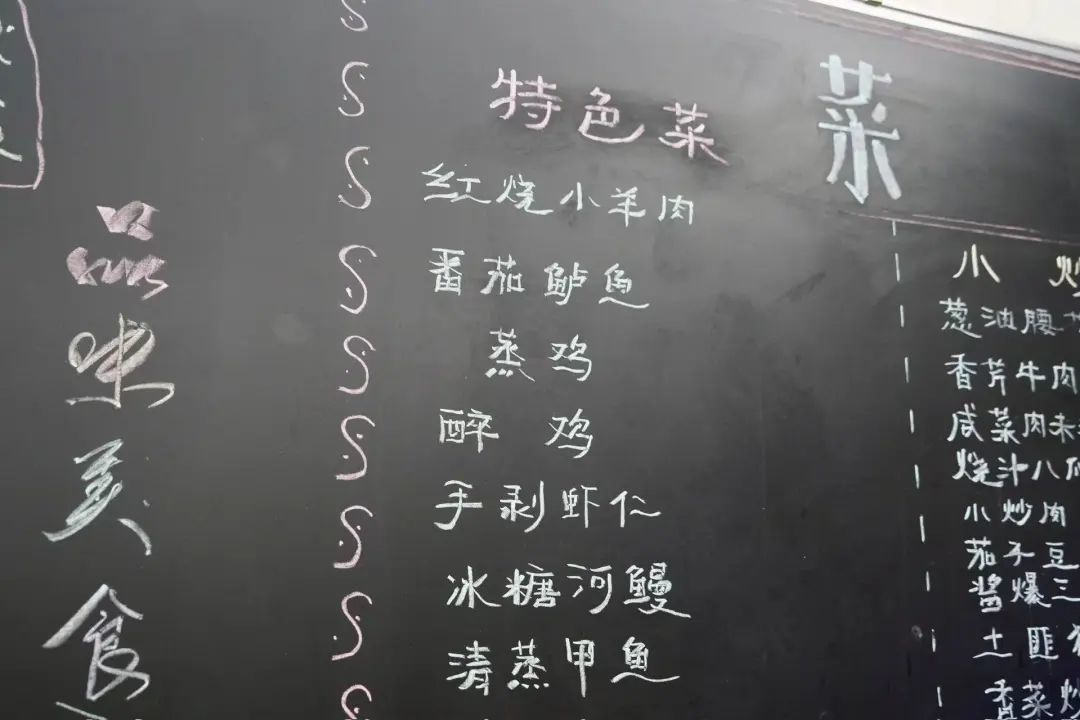 品味美食
特色菜
红烧小羊肉
番茄鲈鱼
蒸鸡
醉鸡
手剥虾仁
冰糖河鳗
清蒸甲鱼
菜
小炒
葱油腰
香芹牛肉
咸菜肉未
烧汁八
小炒肉
茄子豆
酱爆三
土匪
香菜炒